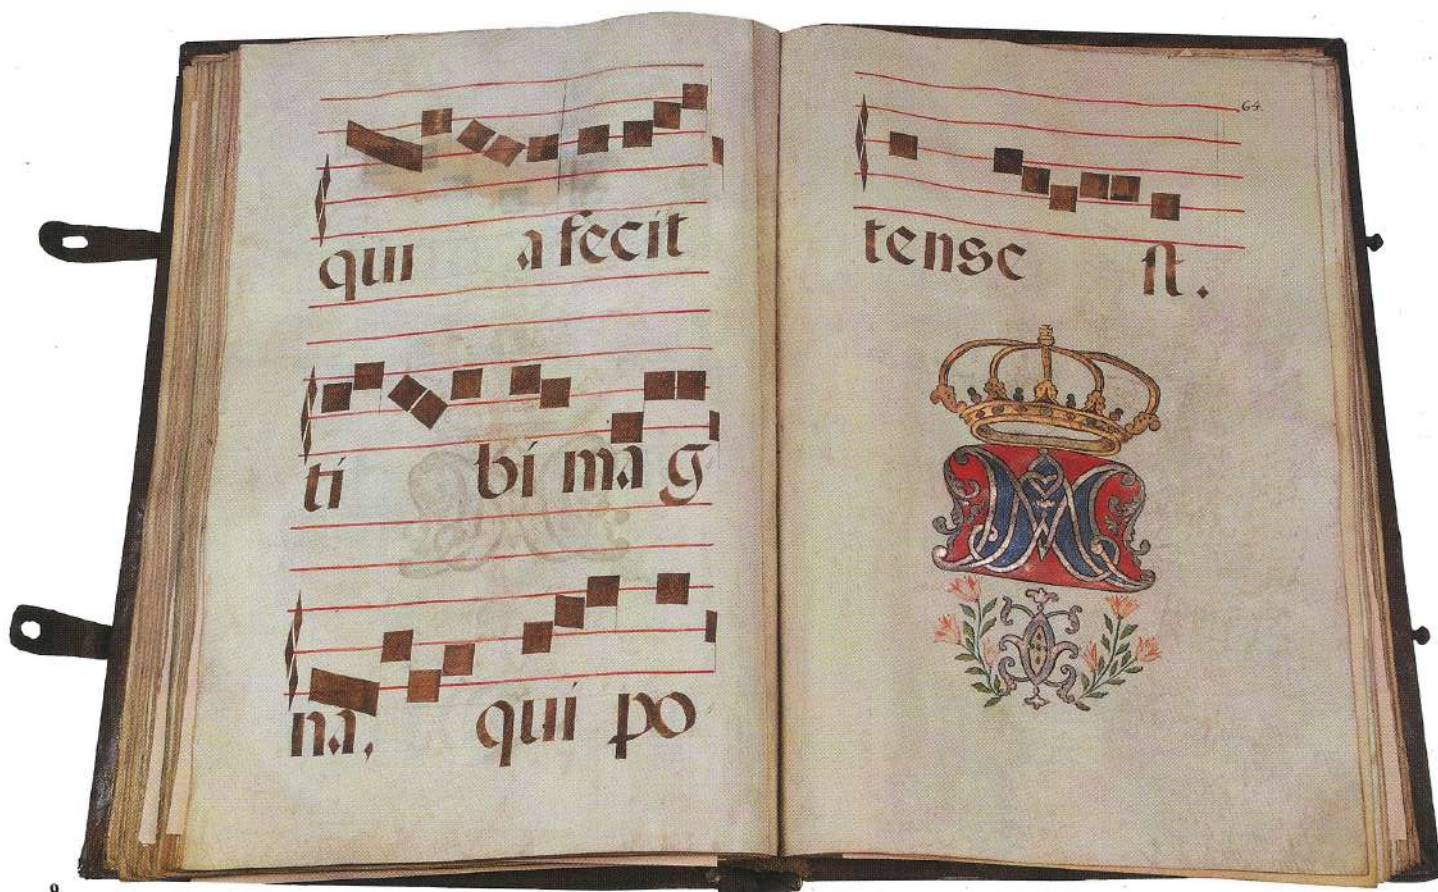 qui a fecit
ti bi ma g
na, qui po
64.
tense st.
9